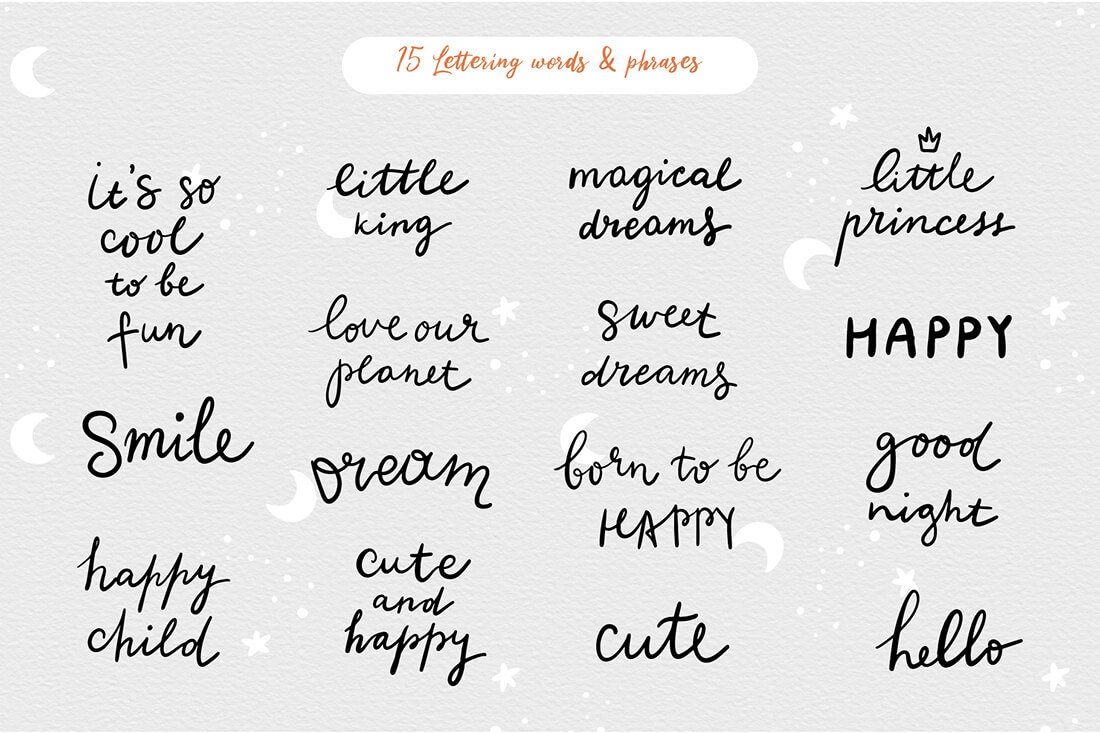 15 Lettering words & phrases
it's so
cool
to be
fun
Smile
happy
child
little
king
love our
planet
Dream
cute
and
happy
magical
dreams
sweet
dreams
born to be
HAPPY
cute
little
princess
HAPPY
good
night
hello